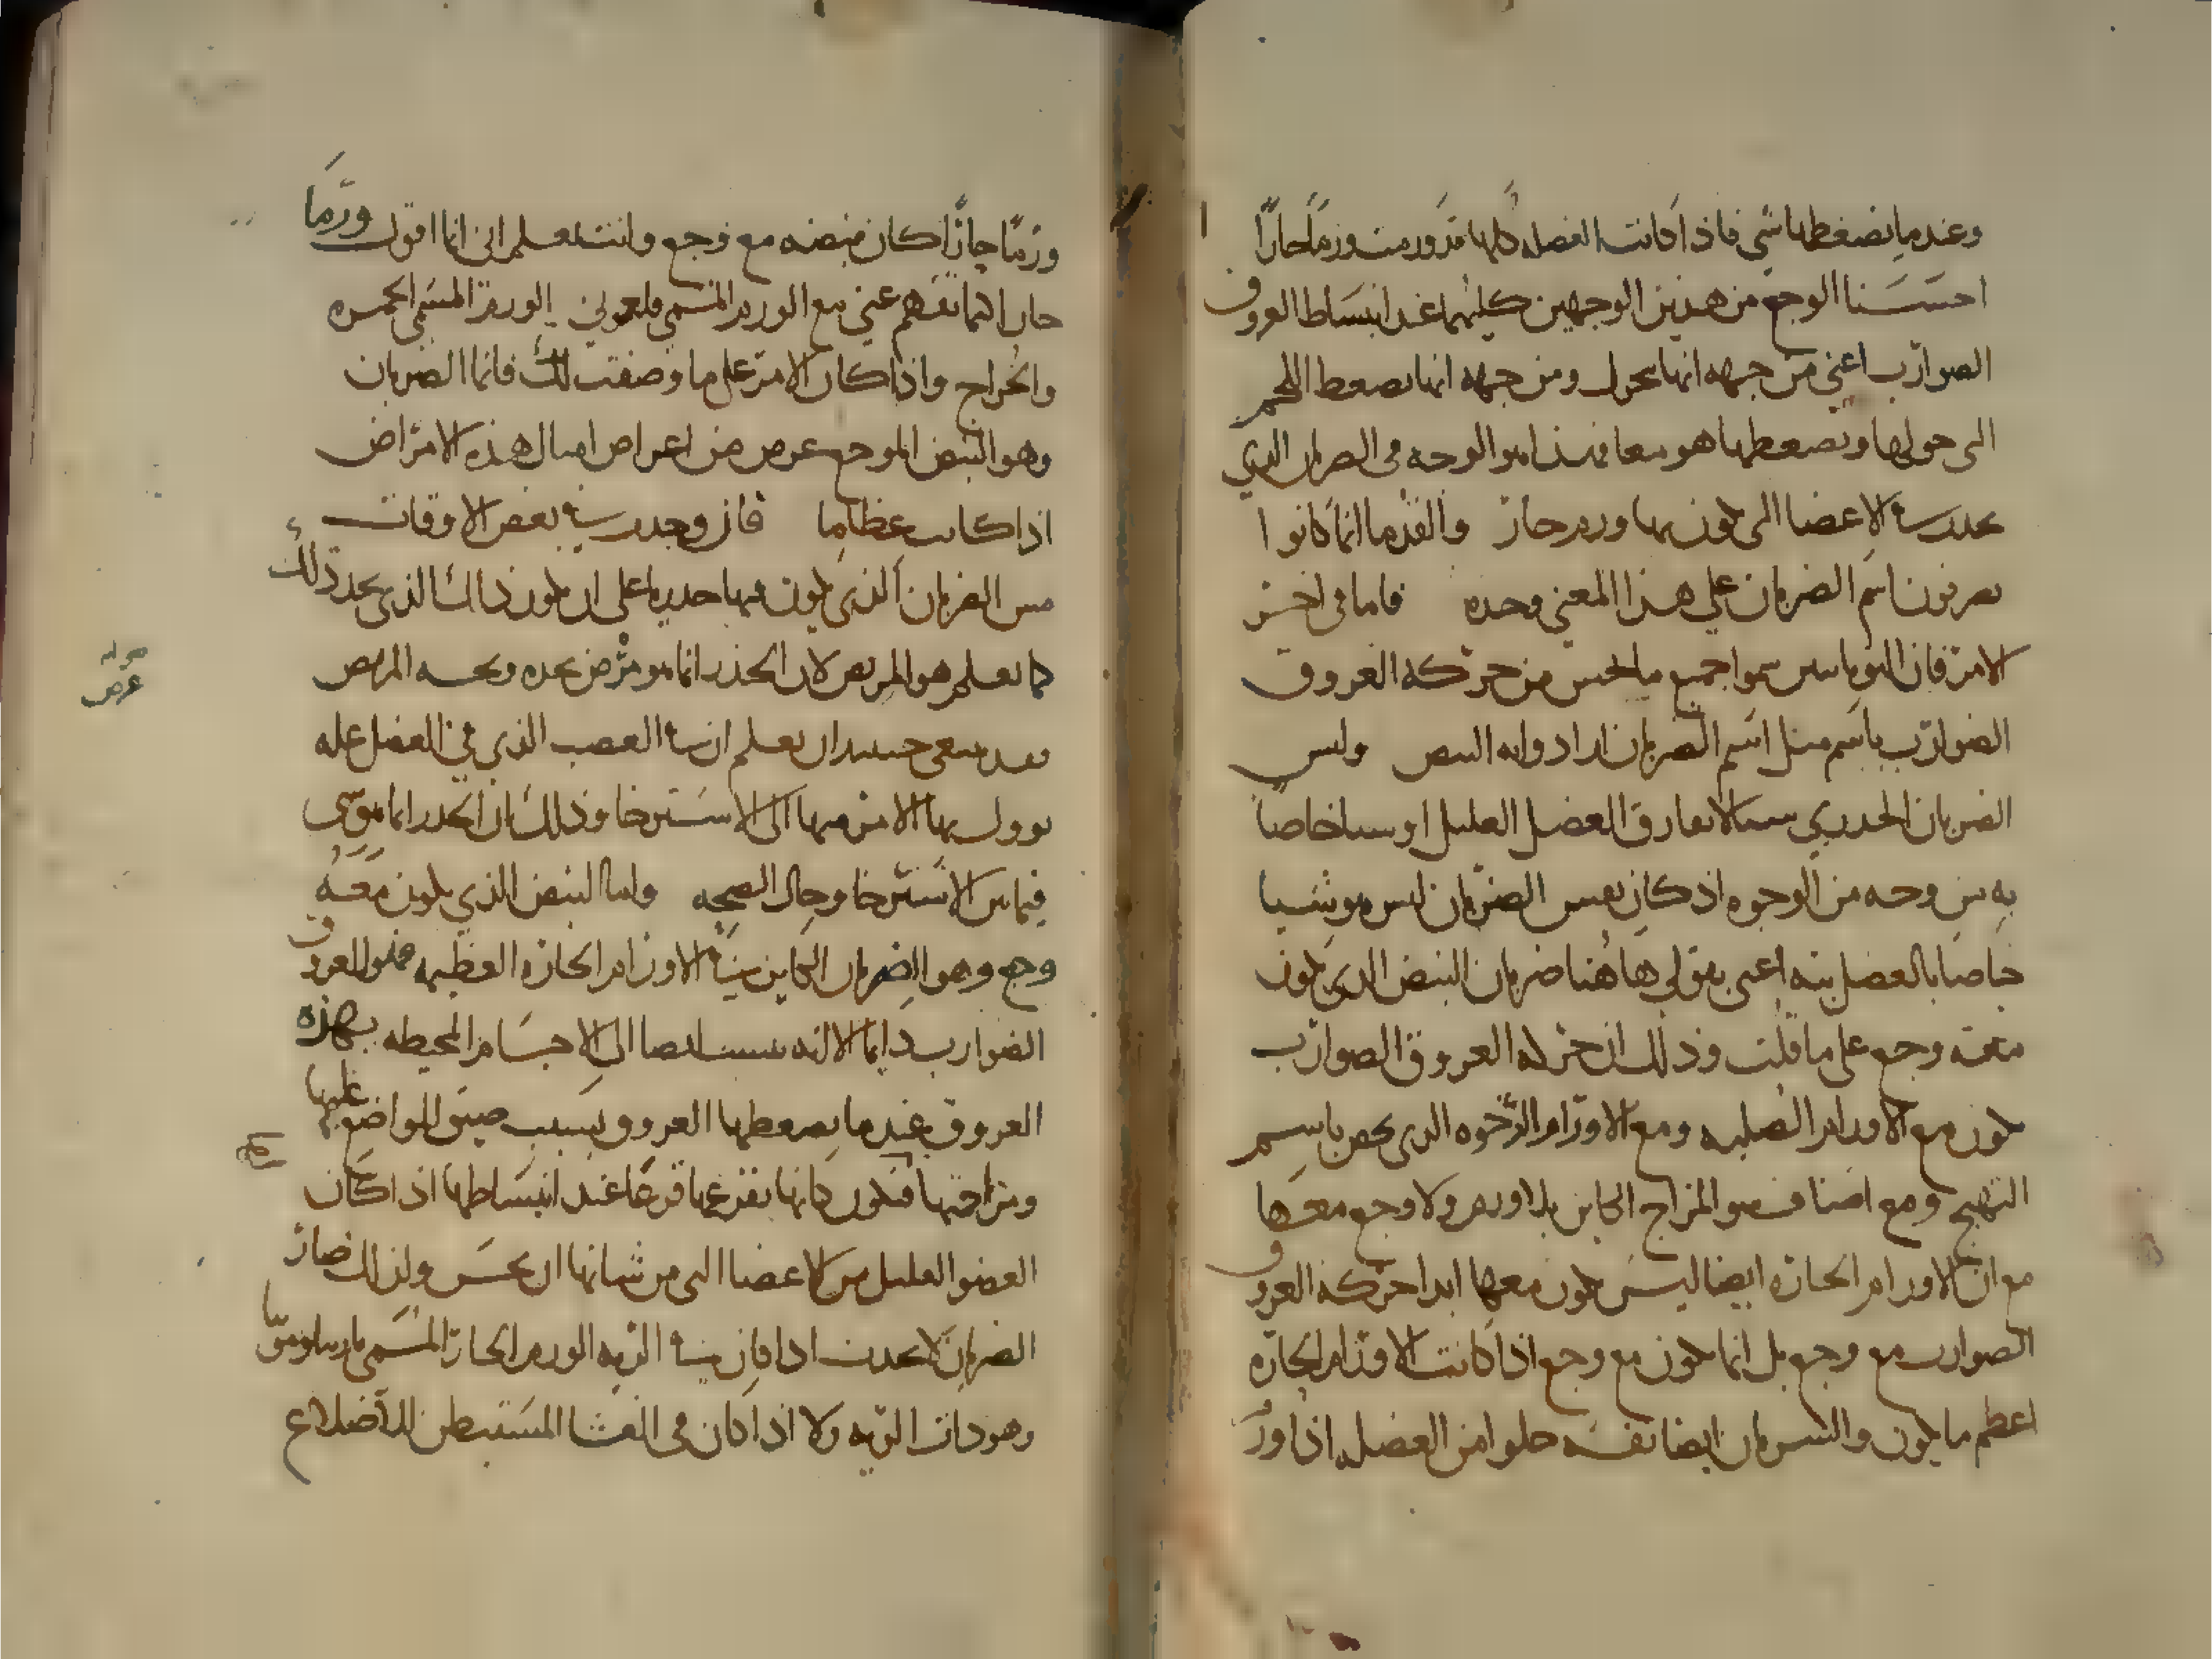 وعندما يضغطها شي فاذا كانت العضله كلها قد ورمت ورما حارا
احسسنا الوجع من هذين الوجهين كليهما عند انبساط العروق
الضوارب اعني من جهه انها تحرك ومن جهه انها تضغط اللحم
التي حولها وتضغطها هو معا فهذا هو الوجه في الضربان الذي
يحدث في الاعضا التي يكون بها ورم حار والقدما انما كانوا
يصرفون اسم الضربان على هذا المعنى وحده فاما في اخر
الامر فان اليونانيين سموا جميع ما يحس من حركه العروق
الضوارب باسم مثل اسم الضربان ارادوا به النبض وليس
الضربان الخدري شيئا لا يفارق العضل العليل او شيا خاصا
به من وجه من الوجوه اذ كان نفس الضربان ليس هو شيا
خاصا بالعضل بته اعني بقولي هاهنا ضربان النبض الذي يكون
معه وجع على ما قلت وذلك ان حركه العروق الضوارب
تكون مع الاورام الصلبه ومع الاورام الرخوه التي تخص باسم
التهيج ومع اصناف سو المزاج الكاين بلا ورم ولا وجع معها
مع ان الاورام الحاره ايضا ليس يكون معها ابدا حركه العروق
الضوارب مع وجع بل انما تكون مع وجع اذا كانت الاورام الحاره
اعظم ما يكون والشريان ايضا نفسه خلوا من العضله اذا ورم
ورما حارا كان نبضه مع وجع وانت تعلم اني انما اقول ورما
حارا كما تفهم عني مع الورم المسمى فلغموني الورم المسمى الحمره
والخراج واذا كان الامر على ما وصفت لك فانما الضربان
وهو النبض الموجع عرض من اعراض امثال هذه الامراض
اذا كانت عظاما فان وجدت في بعض الاوقات
مس الضربان الذي يكون فيها خدريا على ان يكون ذاك الذي يجد ذلك
كما تعلم هو المريض لان الخدر انما هو مرض يجده ويحسه المريض
صوابه
عرض
فقد ينبغي حينئذ ان تعلم ان في العصب الذي في العضل عله
يوول بها الامر فيها الى الاسترخا وذلك ان الخدر انما هو شي
فيما بين الاسترخا وحال الصحه واما النبض الذي يكون معه
وجع وهو الضربان الكاين في الاورام الحاره العظيمه فهو للعروق
الضوارب دايما الا انه ينسب ايضا الى الاجسام المحيطه بهذه
العروق عندما يضغطها العروق بسبب ضيق المواضع عليها
ومزاحمتها فتكون كانها تقرعها قرعا عند انبساطها اذا كان
العضو العليل من الاعضا التي من شانها ان تحس ولذلك صار
الضربان لا يحدث اذا كان في الريه الورم الحار المسمى
وهو ذات الريه ولا اذا كان في الغشا المستبطن للاضلاع